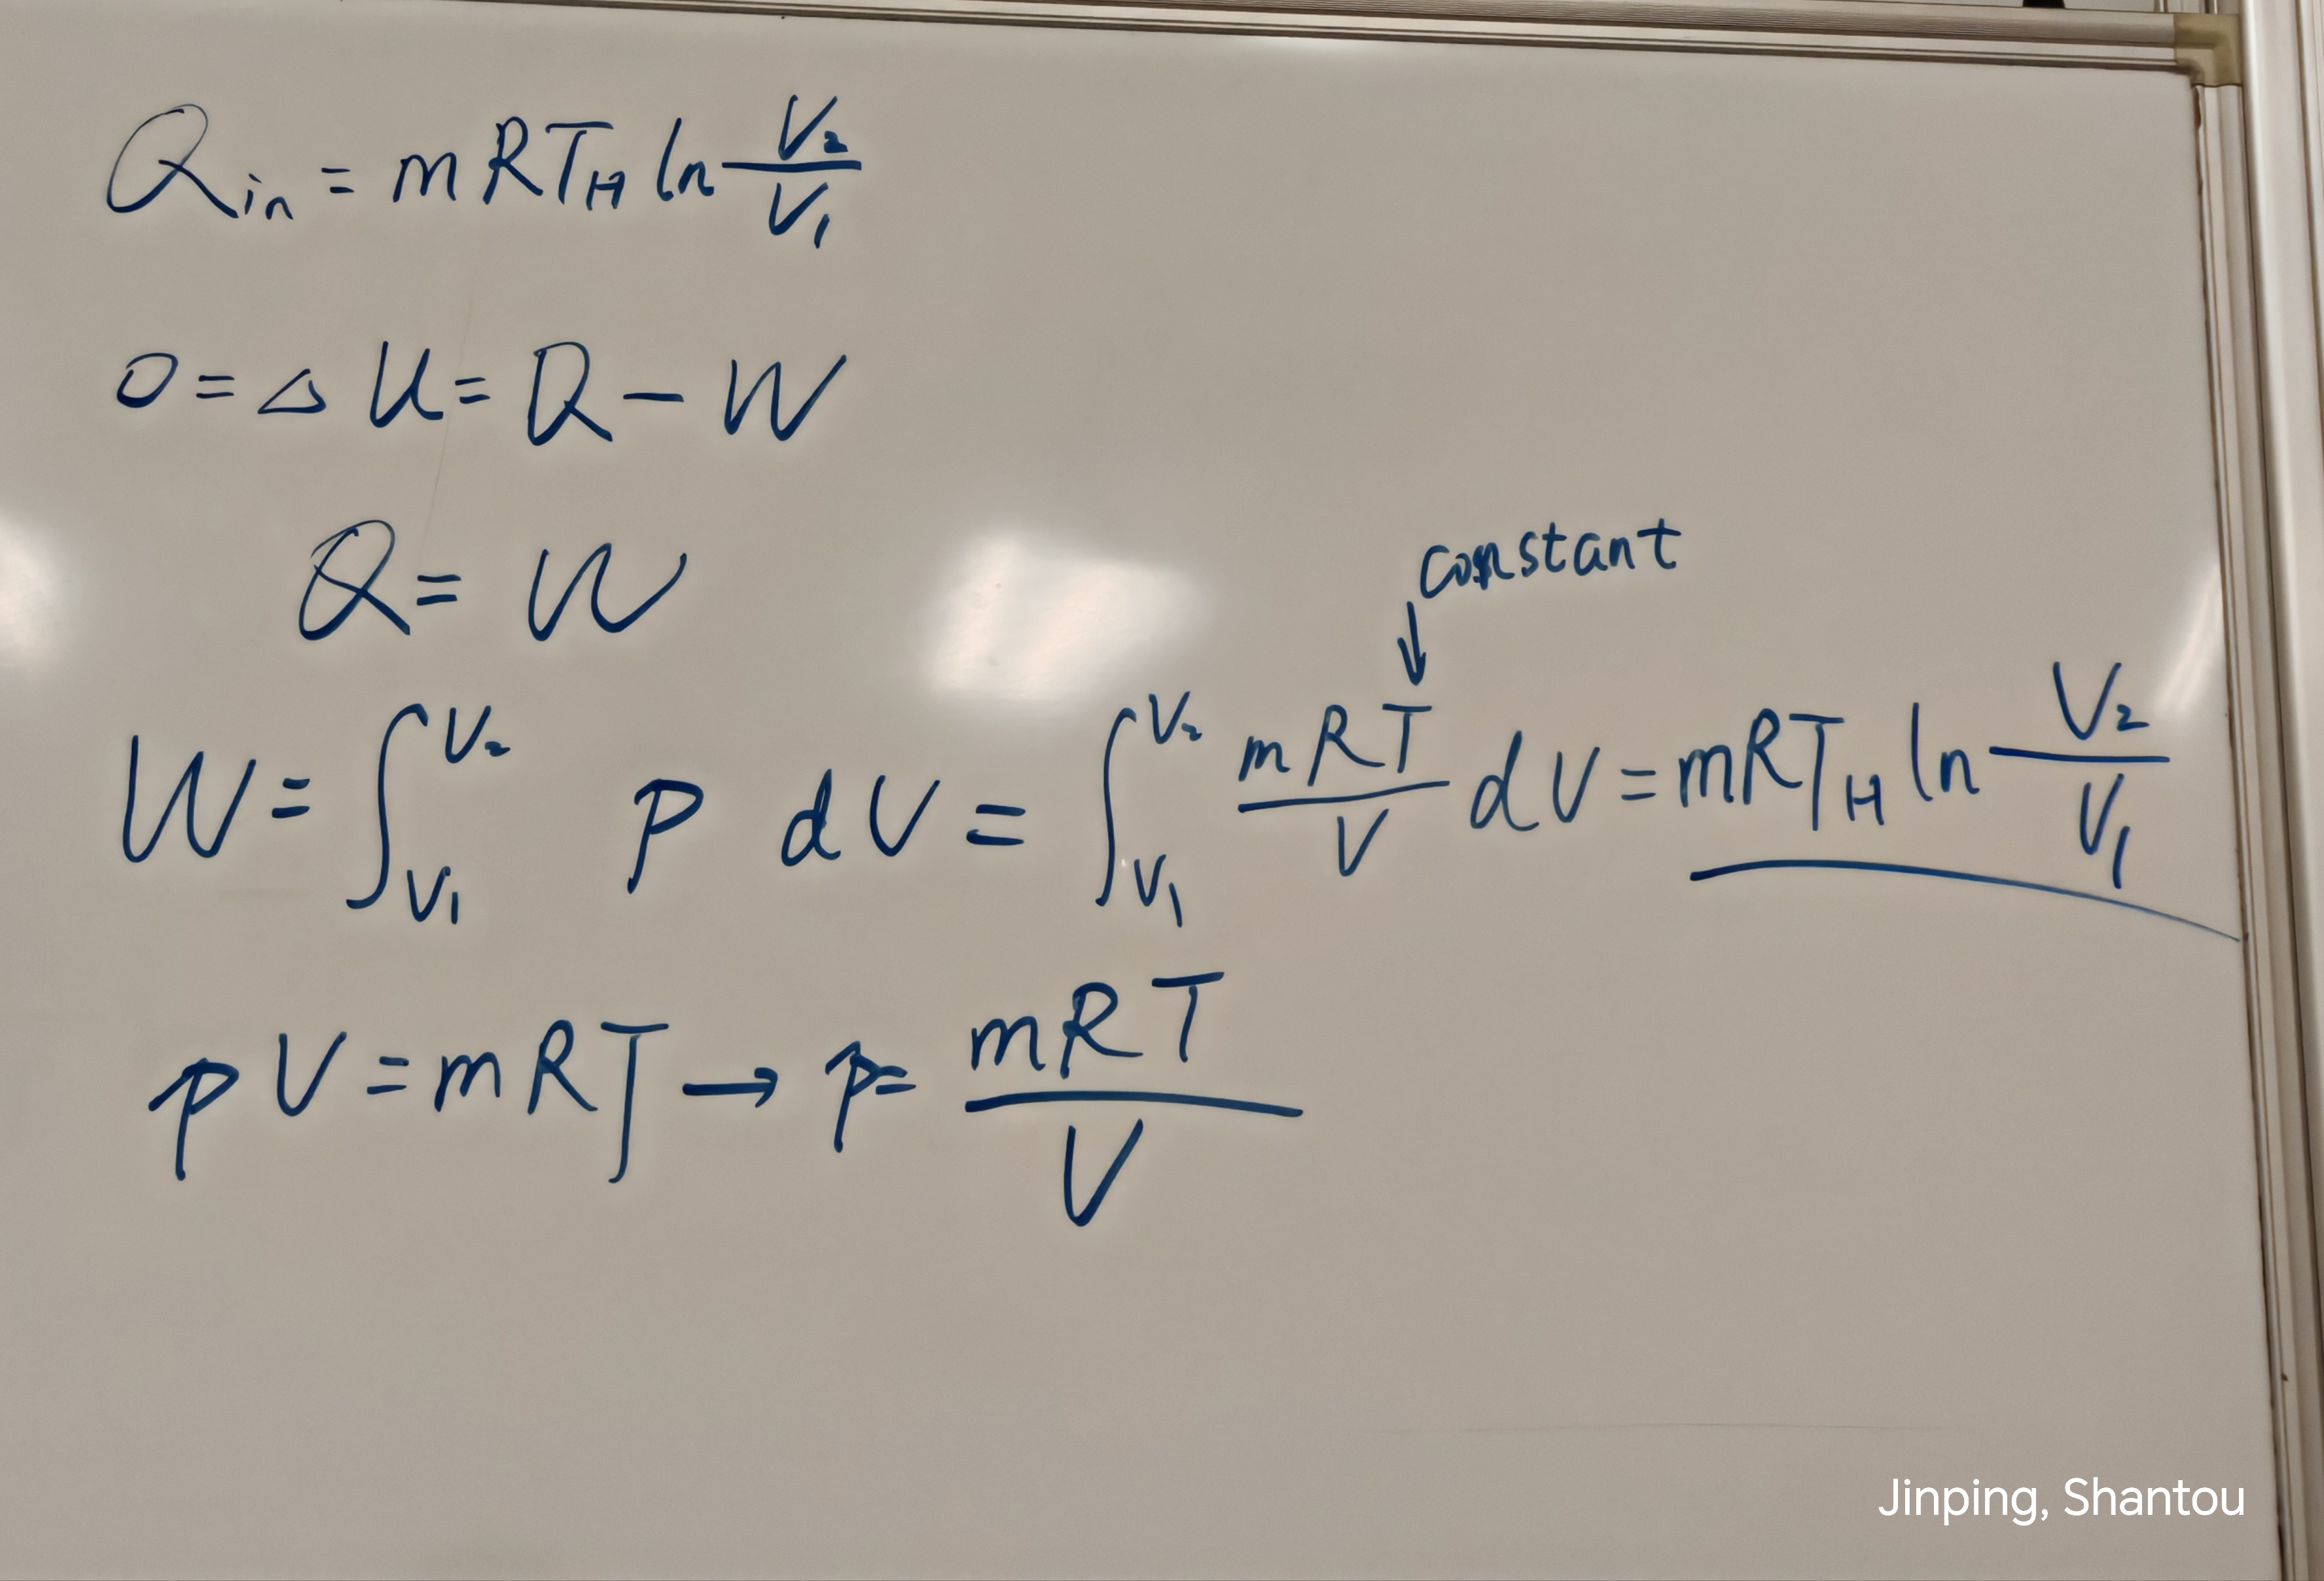 Q_in = mRT_H ln V₂/V₁
0 = △U = Q − W
Q = W
constant
↓
W = ∫_{V₁}^{V₂} p dV = ∫_{V₁}^{V₂} mRT/V dV = mRT_H ln V₂/V₁
pV = mRT → p = mRT/V
Jinping, Shantou